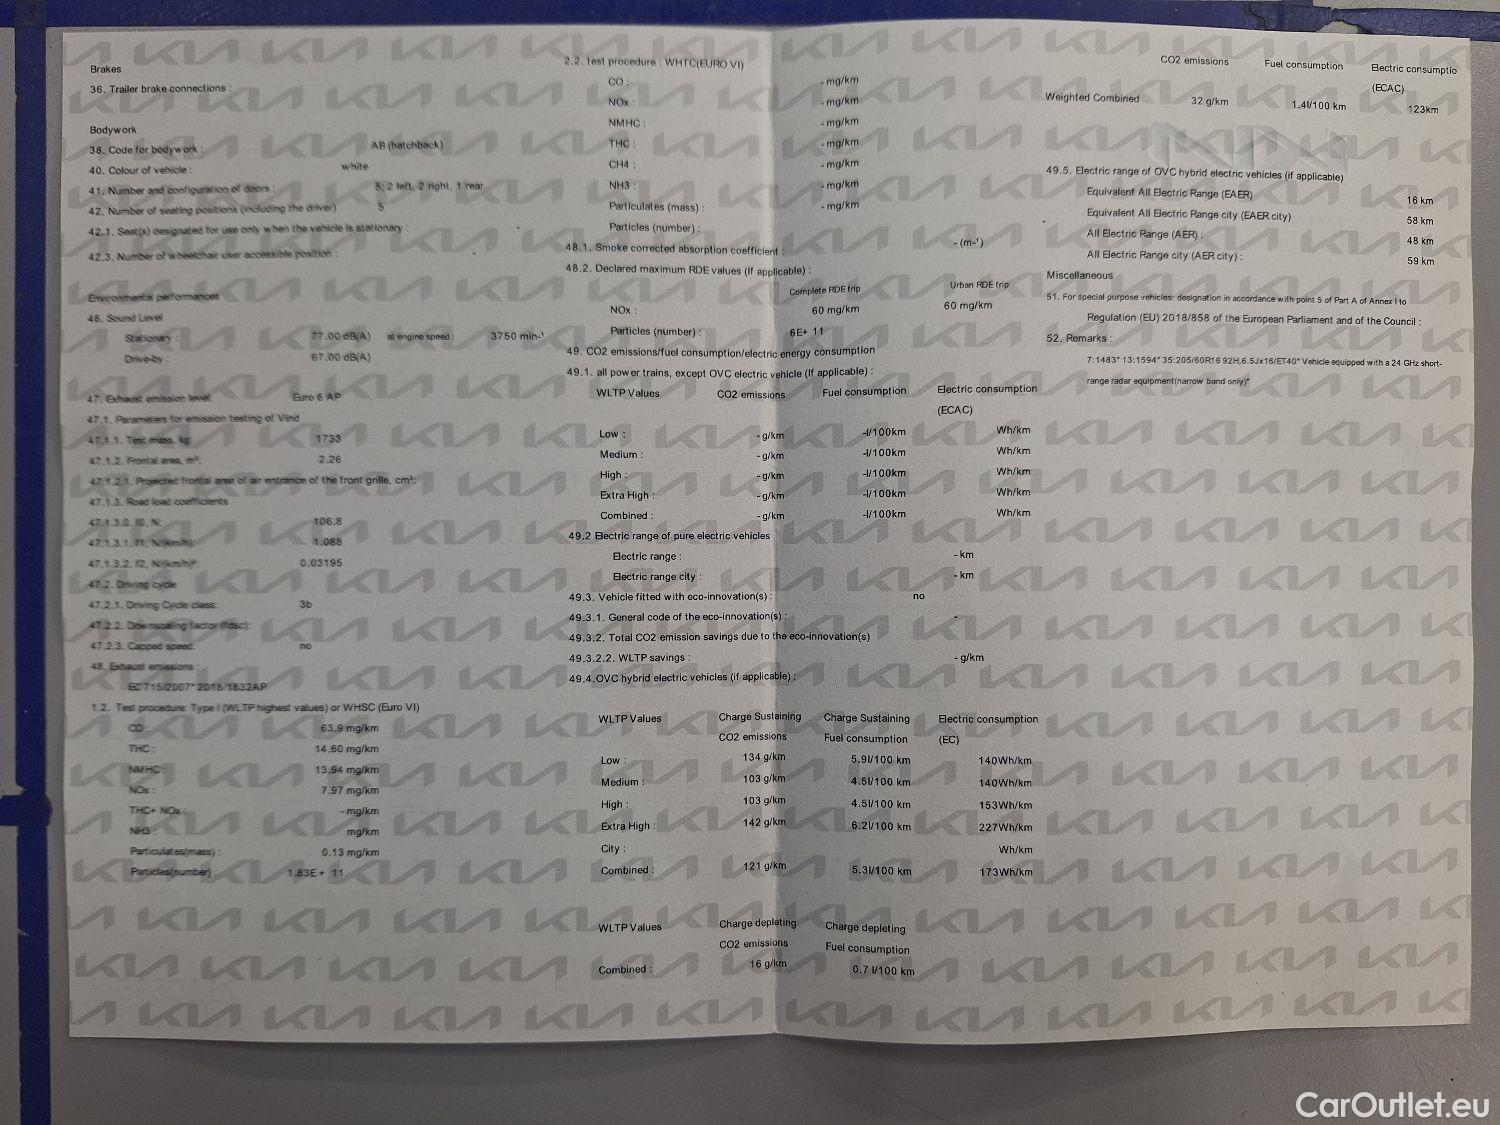 Brakes
36. Trailer brake connections :
Bodywork
38. Code for bodywork : AB (hatchback)
40. Colour of vehicle : white
41. Number and configuration of doors : 5; 2 left, 2 right, 1 rear
42. Number of seating positions (including the driver) 5
42.1. Seat(s) designated for use only when the vehicle is stationary : -
42.3. Number of wheelchair user accessible position : -
Environmental performances
46. Sound Level
Stationary : 77.00 dB(A) at engine speed : 3750 min-¹
Drive-by : 67.00 dB(A)
47. Exhaust emission level: Euro 6 AP
47.1. Parameters for emission testing of Vind
47.1.1. Test mass, kg: 1733
47.1.2. Frontal area, m²: 2.26
47.1.2.1. Projected frontal area of air entrance of the front grille, cm²:
47.1.3. Road load coefficients
47.1.3.0. f0, N: 106.8
47.1.3.1. f1, N/(km/h): 1.088
47.1.3.2. f2, N/(km/h)²: 0.03195
47.2. Driving cycle
47.2.1. Driving Cycle class: 3b
47.2.2. Downscaling factor (fdsc):
47.2.3. Capped speed: no
48. Exhaust emissions :
EC 715/2007* 2018/1832AP
1.2. Test procedure: Type I (WLTP highest values) or WHSC (Euro VI)
CO : 63.9 mg/km
THC : 14.60 mg/km
NMHC : 13.94 mg/km
NOx : 7.97 mg/km
THC+ NOx : - mg/km
NH3 : mg/km
Particulates(mass) : 0.13 mg/km
Particles(number) : 1.83E+ 11
2.2. test procedure : WHTC(EURO VI)
CO : - mg/km
NOx : - mg/km
NMHC : - mg/km
THC : - mg/km
CH4 : - mg/km
NH3 : - mg/km
Particulates (mass) : - mg/km
Particles (number) :
48.1. Smoke corrected absorption coefficient : - (m-¹)
48.2. Declared maximum RDE values (If applicable) :
Complete RDE trip Urban RDE trip
NOx : 60 mg/km 60 mg/km
Particles (number) : 6E+ 11
49. CO2 emissions/fuel consumption/electric energy consumption
49.1. all power trains, except OVC electric vehicle (If applicable) :
WLTP Values CO2 emissions Fuel consumption Electric consumption
(ECAC)
Low : - g/km -l/100km Wh/km
Medium : - g/km -l/100km Wh/km
High : - g/km -l/100km Wh/km
Extra High : - g/km -l/100km Wh/km
Combined : - g/km -l/100km Wh/km
49.2 Electric range of pure electric vehicles
Electric range : - km
Electric range city : - km
49.3. Vehicle fitted with eco-innovation(s) : no
49.3.1. General code of the eco-innovation(s) : -
49.3.2. Total CO2 emission savings due to the eco-innovation(s)
49.3.2.2. WLTP savings : - g/km
49.4.OVC hybrid electric vehicles (if applicable) :
WLTP Values Charge Sustaining Charge Sustaining Electric consumption
CO2 emissions Fuel consumption (EC)
Low : 134 g/km 5.9l/100 km 140Wh/km
Medium : 103 g/km 4.5l/100 km 140Wh/km
High : 103 g/km 4.5l/100 km 153Wh/km
Extra High : 142 g/km 6.2l/100 km 227Wh/km
City : Wh/km
Combined : 121 g/km 5.3l/100 km 173Wh/km
WLTP Values Charge depleting Charge depleting
CO2 emissions Fuel consumption
Combined : 16 g/km 0.7 l/100 km
CO2 emissions Fuel consumption Electric consumptio
(ECAC)
Weighted Combined 32 g/km 1.4l/100 km 123km
49.5. Electric range of OVC hybrid electric vehicles (if applicable)
Equivalent All Electric Range (EAER) 16 km
Equivalent All Electric Range city (EAER city) 58 km
All Electric Range (AER) : 48 km
All Electric Range city (AER city) : 59 km
Miscellaneous
51. For special purpose vehicles: designation in accordance with point 5 of Part A of Annex I to
Regulation (EU) 2018/858 of the European Parliament and of the Council :
52. Remarks :
7:1483* 13:1594* 35:205/60R16 92H,6.5Jx16/ET40* Vehicle equipped with a 24 GHz short-
range radar equipment(narrow band only)*
CarOutlet.eu